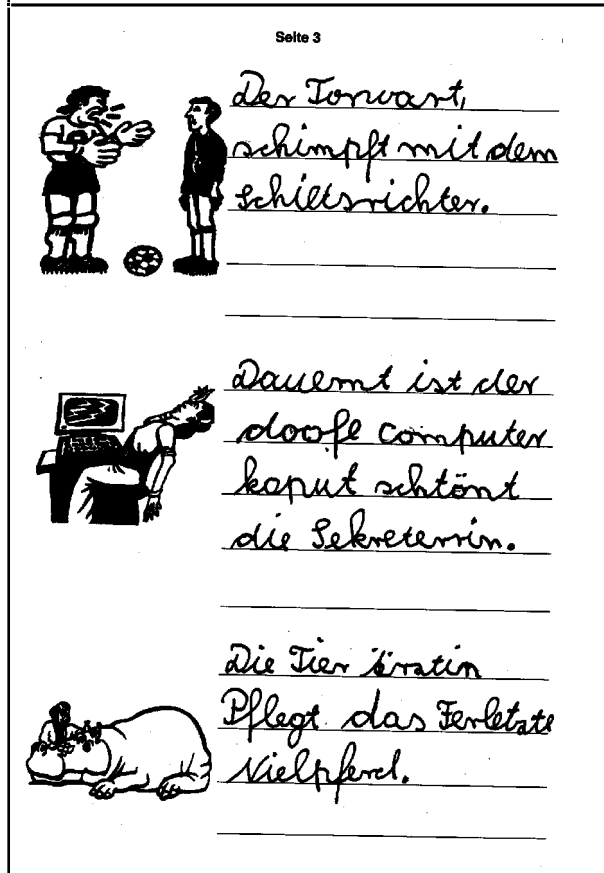 Seite 3
Der Torwart,
schimpft mit dem
Schiltsrichter.
Dauernt ist der
doofe Computer
kaput schtönt
die Sekreterrin.
Die Tier äratin
Pflegt das Ferletzte
Nielpferd.